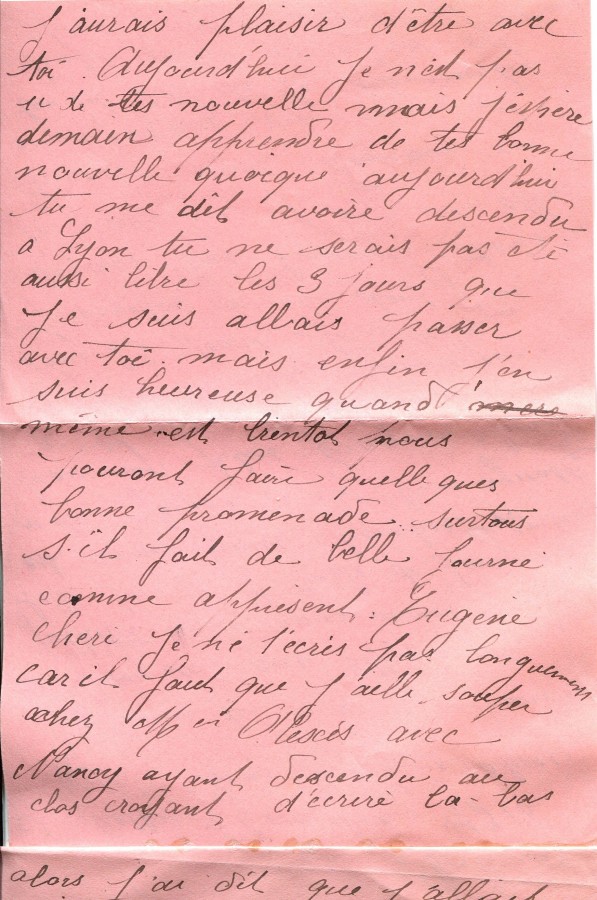 j'aurais plaisir d'être avec
toi. Aujourd'hui je n'est pas
u de tes nouvelle mais j'éspère
demain apprendre de tes bonne
nouvelle quoique aujourd'hui
tu me dit avoire descendu
a Lyon tu ne serais pas été
aussi libre les 3 jours que
Je suis allais passer
avec toi. mais enfin j'en
suis heureuse quand
même est bientot nous
pouront faire quelleques
bonne promenade surtous
s'il fait de belle journé
comme appresent. Eugène
cheri Je ne t'écris pas longuement
car il faut que j'aille souper
chez Alexis avec
Nancy ayant descendu au
clos croyant d'écrire la-bas
alors j'ai dit que j'allait